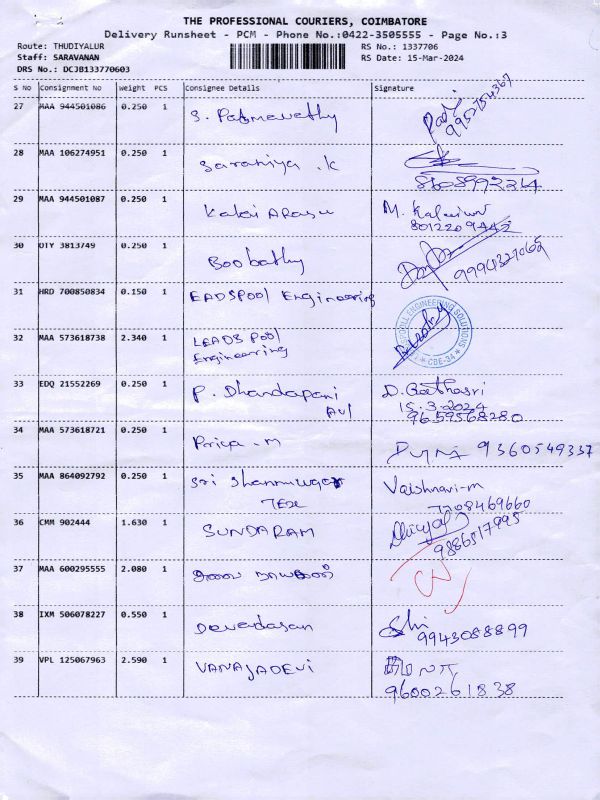 THE PROFESSIONAL COURIERS, COIMBATORE
Delivery Runsheet - PCM - Phone No.:0422-3505555 - Page No.:3
Route: THUDIYALUR
RS No.: 1337706
Staff: SARAVANAN
RS Date: 15-Mar-2024
DRS No.: DCJB133770603
S No Consignment No Weight PCS Consignee Details Signature
27 MAA 944501086 0.250 1 S. Padmavathy 9952754367
28 MAA 106274951 0.250 1 Saraniya .K 8608992264
29 MAA 944501087 0.250 1 Kalai Arasu M. 8012209442
30 UTY 3813749 0.250 1 Boobathy 9994327062
31 HRD 700850834 0.150 1 EADSPool Engineering
32 MAA 573618738 2.340 1 LEADS Pool
Engineering
ENGINEERING SOLUTIONS
CBE-34
33 EDQ 21552269 0.250 1 P. Dhandapani D. Geethasri
15.3.2024
9659568280
34 MAA 573618721 0.250 1 Priya .M 9360549337
35 MAA 864092792 0.250 1 Sri Shanmuga Vaishnavi-m
Tex 7708469660
36 CMM 902444 1.630 1 SUNDARAM 9886517995
37 MAA 600295555 2.080 1
38 IXM 506078227 0.550 1 Devadasan 9943088899
39 VPL 125067963 2.590 1 VANAJADEVI
9600261838